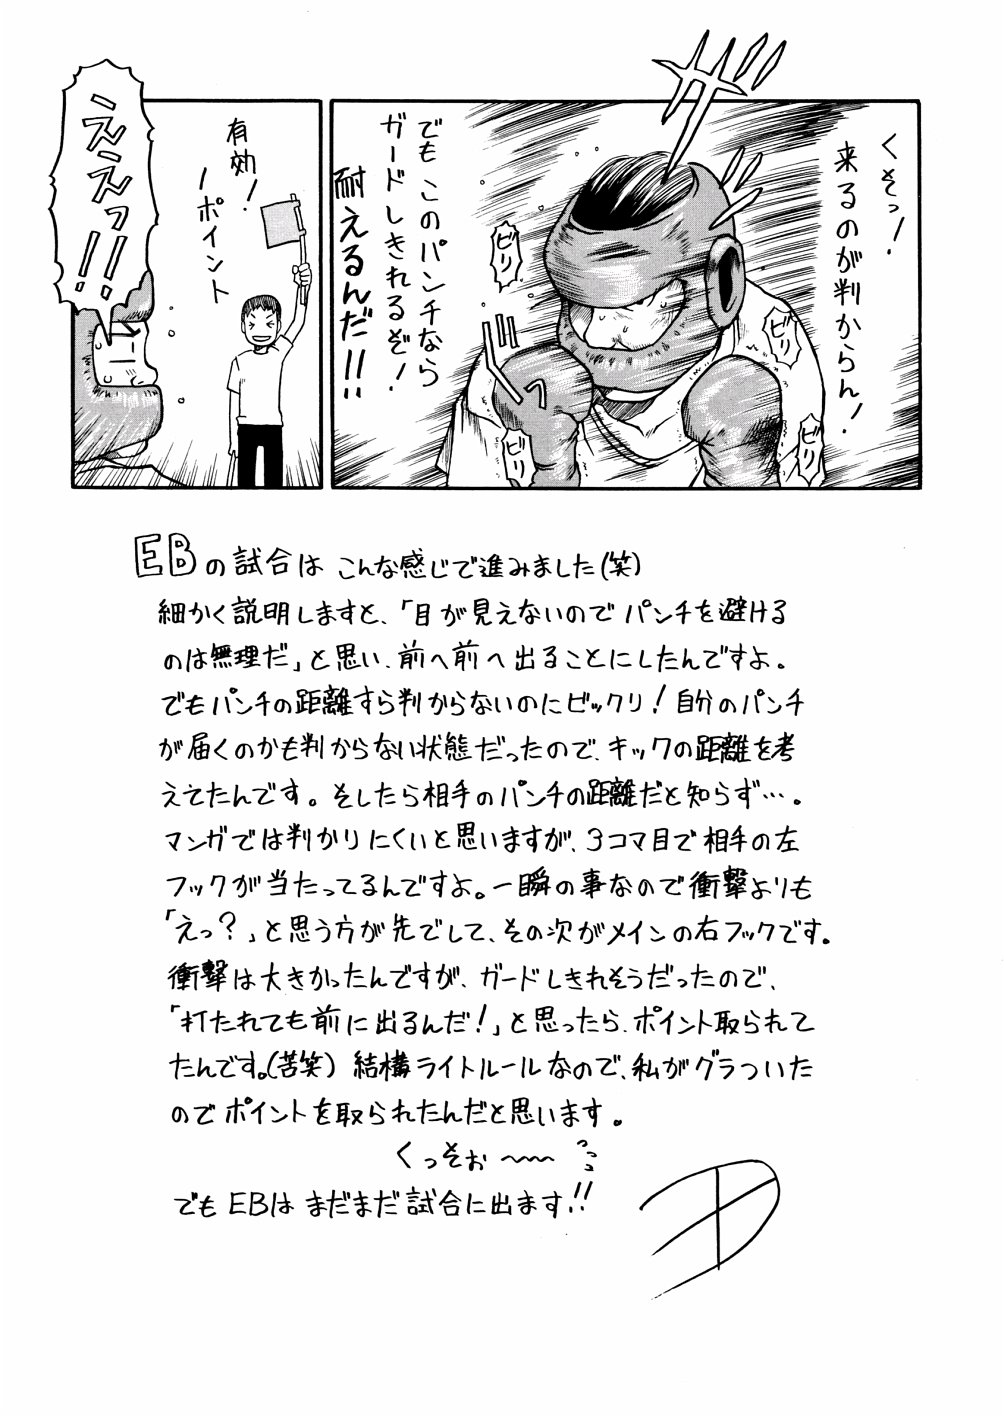 くそっ！
来るのが判からん！
ガガッ
ビリ
ビリ
ビリ
でもこのパンチなら
ガードしきれるぞ！
耐えるんだ!!
有効！
1ポイント
ええっ!!
EBの試合は こんな感じで進みました(笑)
細かく説明しますと、「目が見えないのでパンチを避ける
のは無理だ」と思い、前へ前へ出ることにしたんですよ。
でもパンチの距離すら判からないのにビックリ！自分のパンチ
が届くのかも判からない状態だったので、キックの距離を考
えてたんです。そしたら相手のパンチの距離だと知らず…。
マンガでは判かりにくいと思いますが、3コマ目で相手の左
フックが当たってるんですよ。一瞬の事なので衝撃よりも
「えっ？」と思う方が先でして、その次がメインの右フックです。
衝撃は大きかったんですが、ガードしきれそうだったので、
「打たれても前に出るんだ！」と思ったら、ポイント取られて
たんです。(苦笑) 結構ライトルールなので、私がグラついた
のでポイントを取られたんだと思います。
くっそぉ〜〜っっっ
でもEBはまだまだ試合に出ます!!